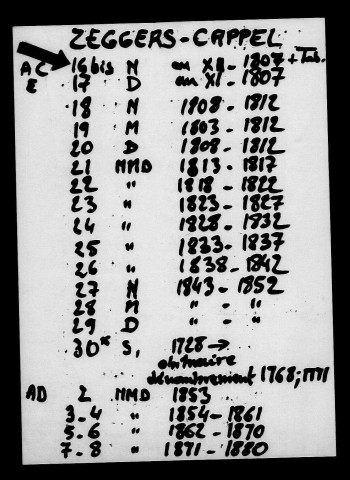 ZEGGERS-CAPPEL
AC 16 bis N an XII - 1807 + Tab.
E 17 D an XI - 1807
18 N 1808 - 1812
19 M 1803 - 1812
20 D 1808 - 1812
21 NMD 1813 - 1817
22 " 1818 - 1822
23 " 1823 - 1827
24 " 1828 - 1832
25 " 1833 - 1837
26 " 1838 - 1842
27 N 1843 - 1852
28 M " - "
29 D " - "
30* S, 1728 →
obituaire
dénombrement 1768;
AD 2 NMD 1853
3-4 " 1854 - 1861
5-6 " 1862 - 1870
7-8 " 1871 - 1880